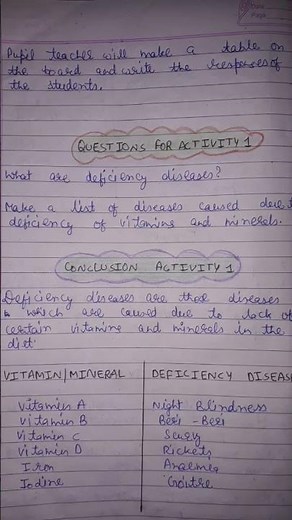 Pupil teacher will make a table on
the board and write the responses of
the students.
QUESTIONS FOR ACTIVITY 1
What are deficiency diseases?
Make a list of diseases caused due
deficiency of vitamins and minerals.
CONCLUSION ACTIVITY 1
Deficiency diseases are those diseases
which are caused due to lack of
certain vitamins and minerals in the
diet
VITAMIN/MINERAL DEFICIENCY DISEASE
Vitamin A Night Blindness
Vitamin B Beri-Beri
Vitamin C Scurvy
Vitamin D Rickets
Iron Anaemea
Iodine Goitre